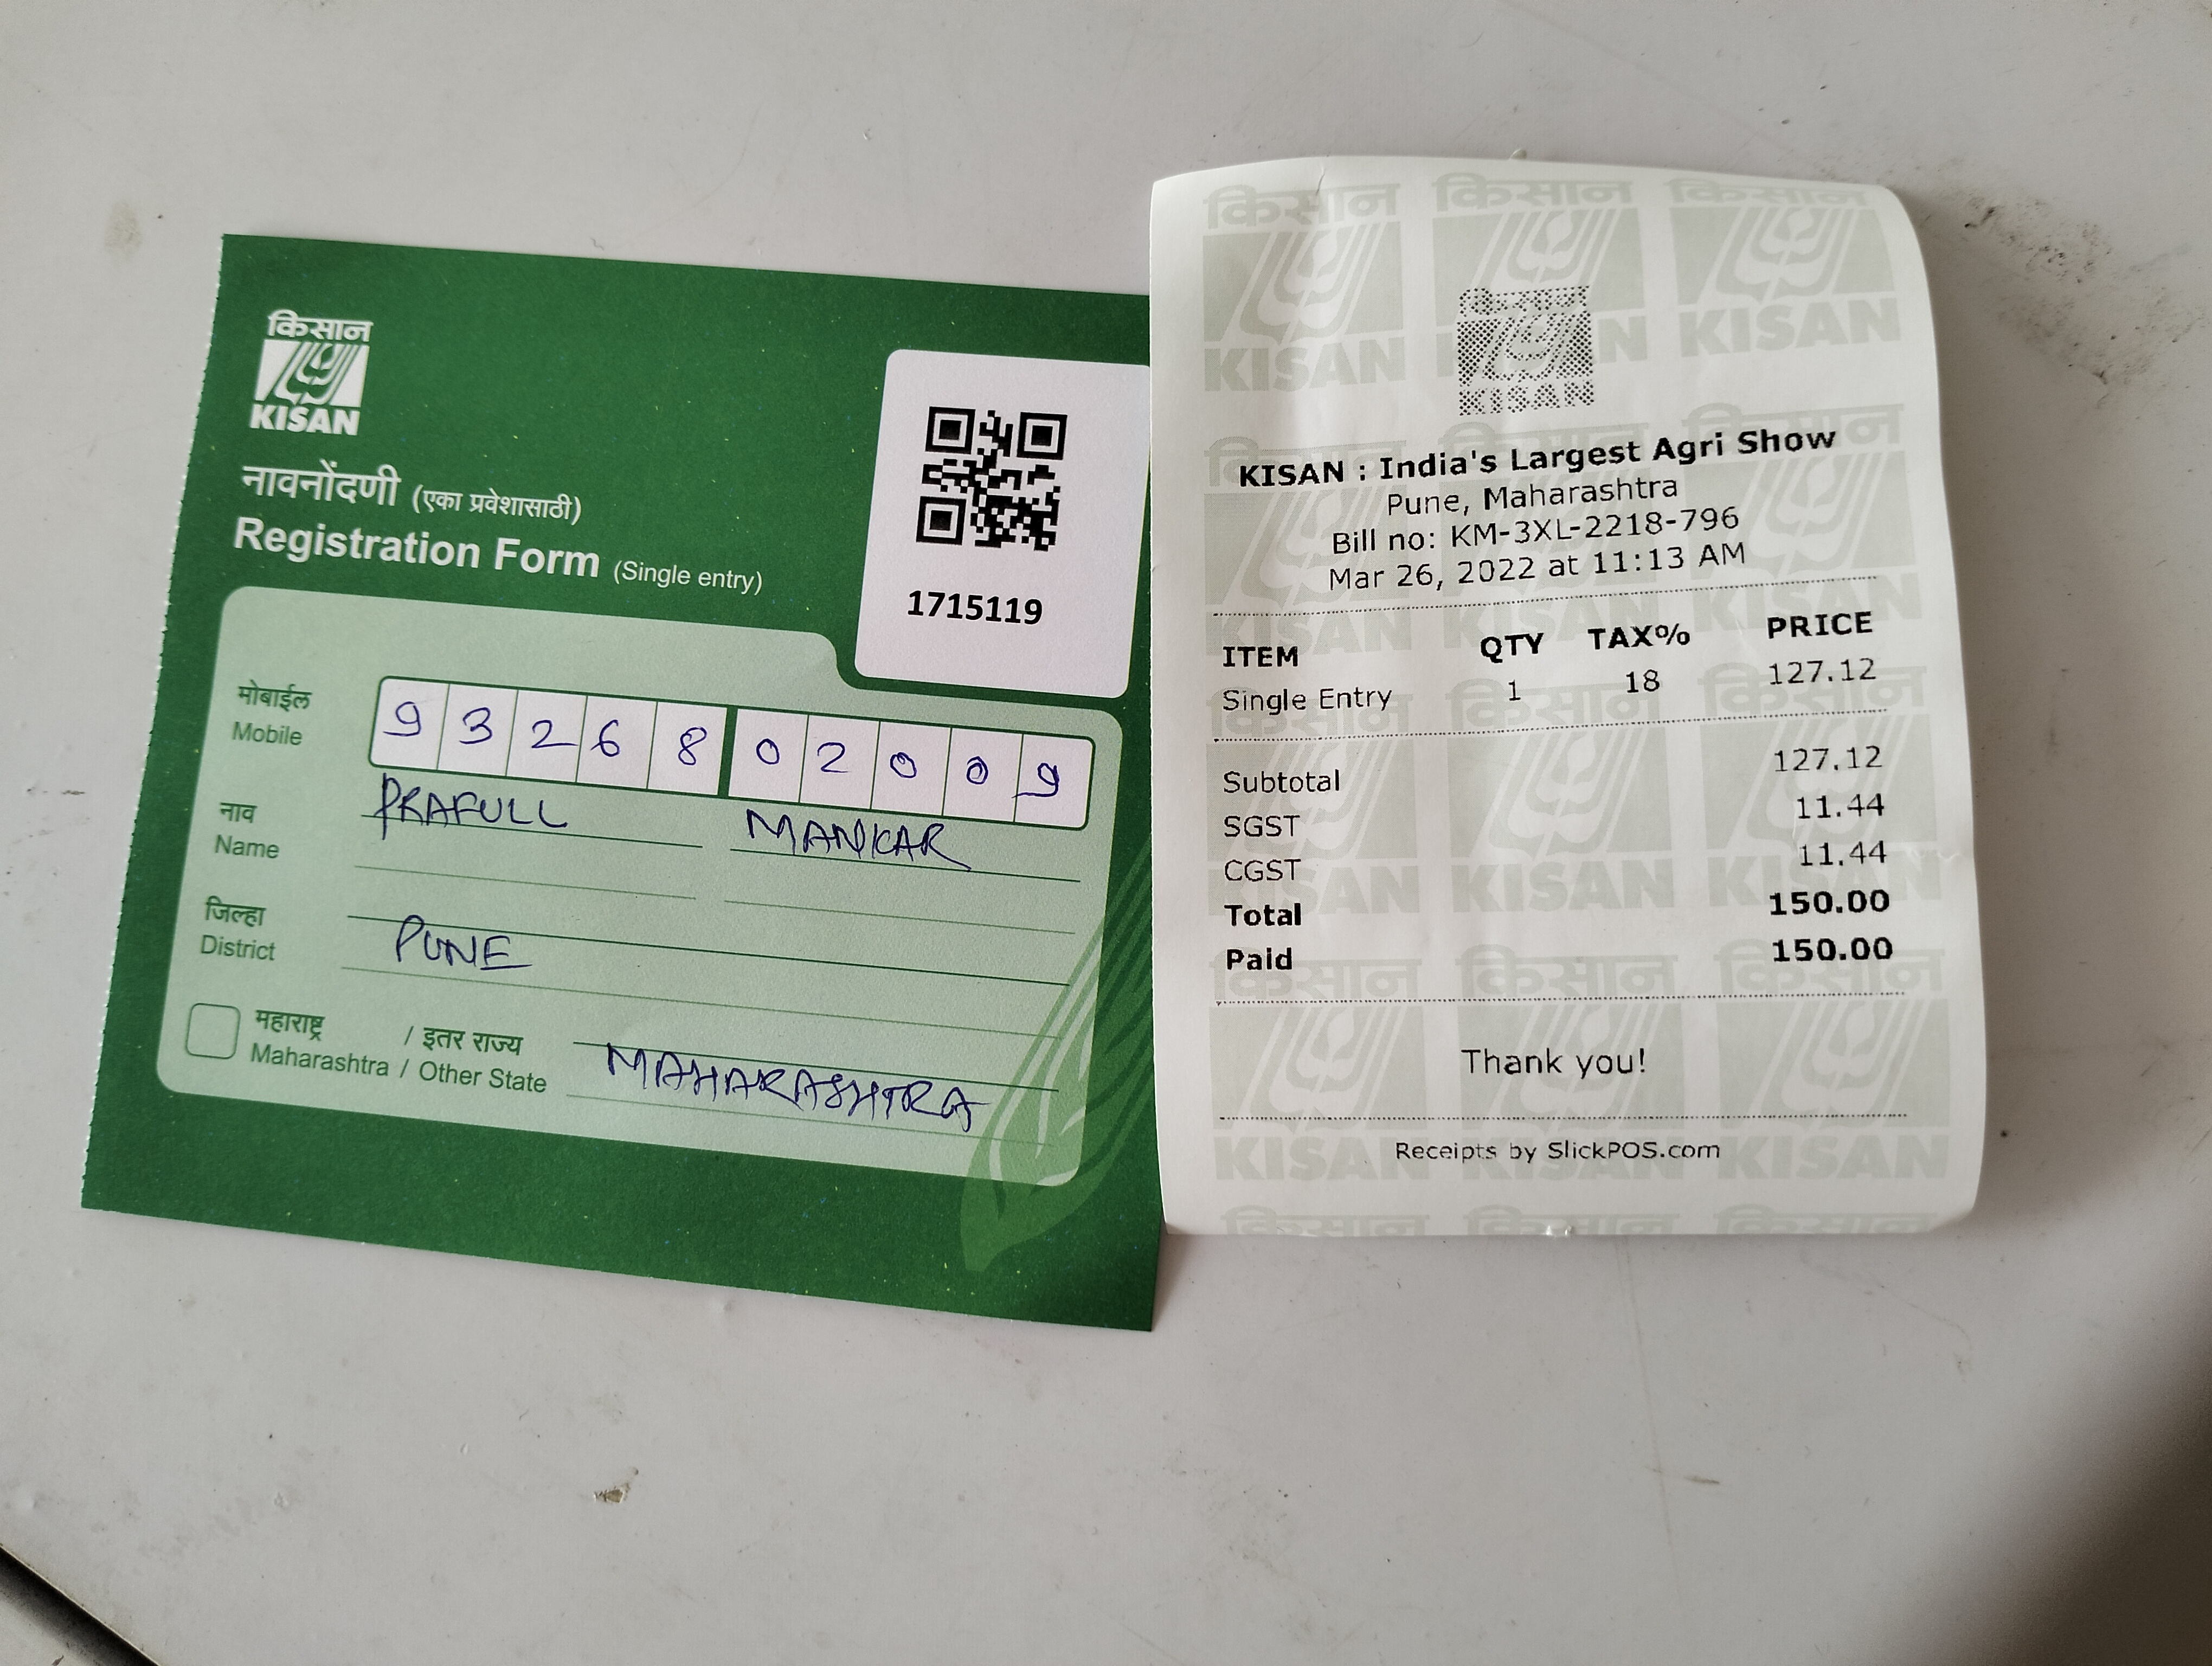 किसान
KISAN
नावनोंदणी (एका प्रवेशासाठी)
Registration Form (Single entry)
1715119
मोबाईल
Mobile
9 3 2 6 8 0 2 0 0 9
नाव
Name
PRAFULL MANKAR
जिल्हा
District
PUNE
महाराष्ट्र / इतर राज्य
Maharashtra / Other State
MAHARASHTRA
किसान किसान किसान
KISAN KISAN
किसान
KISAN
KISAN : India's Largest Agri Show
Pune, Maharashtra
Bill no: KM-3XL-2218-796
Mar 26, 2022 at 11:13 AM
ITEM QTY TAX% PRICE
Single Entry 1 18 127.12
Subtotal 127.12
SGST 11.44
CGST 11.44
Total 150.00
Paid 150.00
Thank you!
Receipts by SlickPOS.com